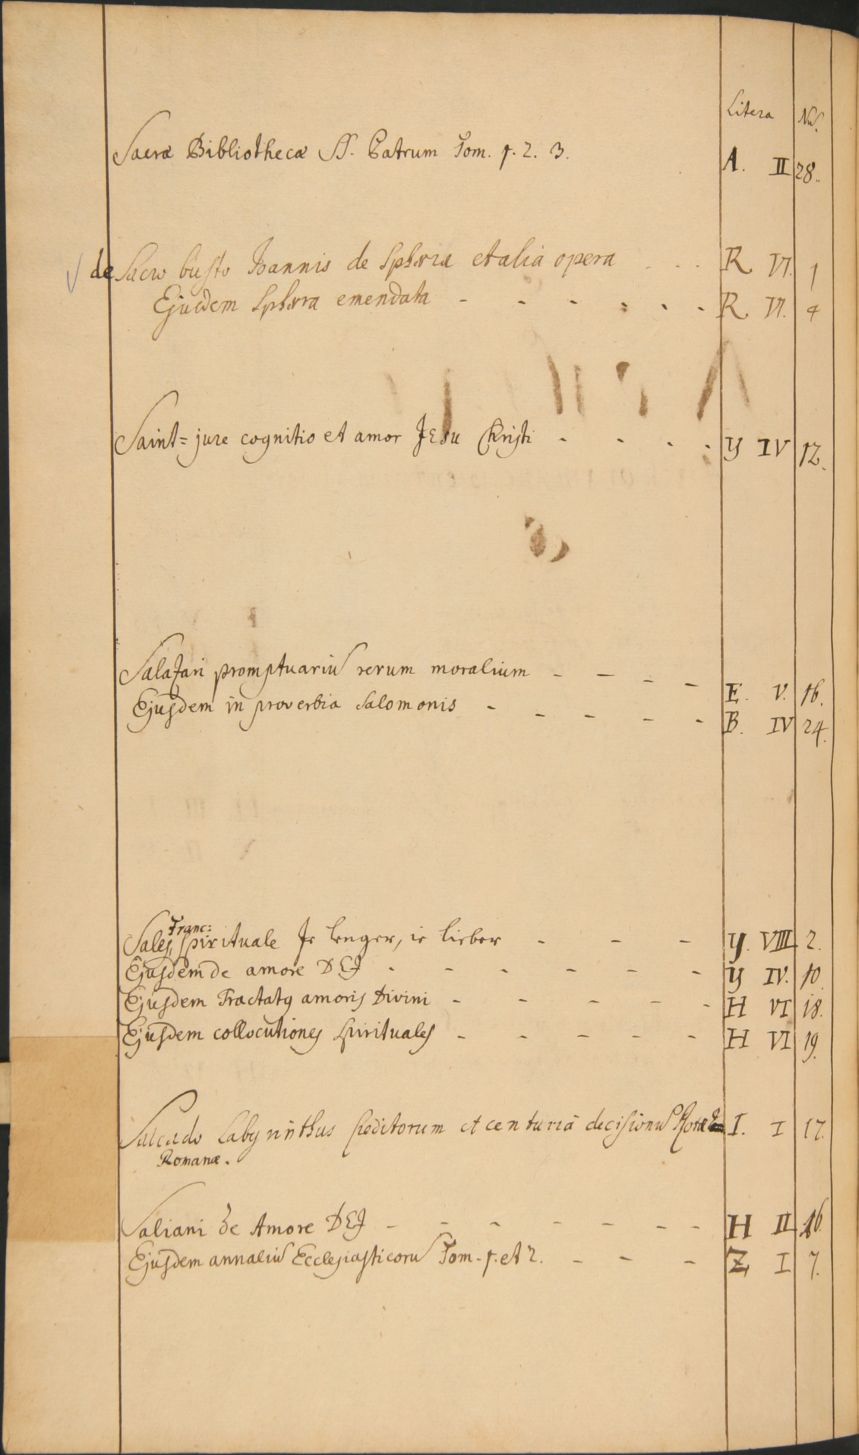 Litera Nū.
Sacræ Bibliothecæ SS. Patrum Tom. 1. 2. 3. A. II 28.
de Sacro busto Joannis de Sphæra et alia opera R VI. 1
Ejusdem Sphæra emendata R. VI. 4
Saint=jure cognitio et amor JEsu Christi Y IV 12.
Salazari promptuariū rerum moralium E V. 16.
Ejusdem in proverbia Salomonis B. IV 24.
Franc:
Sales spirituale Je lenger, ie lieber Y. VIII 2.
Ejusdem de amore DEJ Y IV. 10
Ejusdem Tractatq amoris Divini H VI 18.
Ejusdem collocutiones spirituales H VI 19.
Salcado Labyrinthus Creditorum et centuria decisionū Rotæ I. I 17.
Romanæ.
Saliani de Amore DEJ H II 16
Ejusdem annaliū Ecclesiasticorū Tom. 1. et 2. Z I 7.